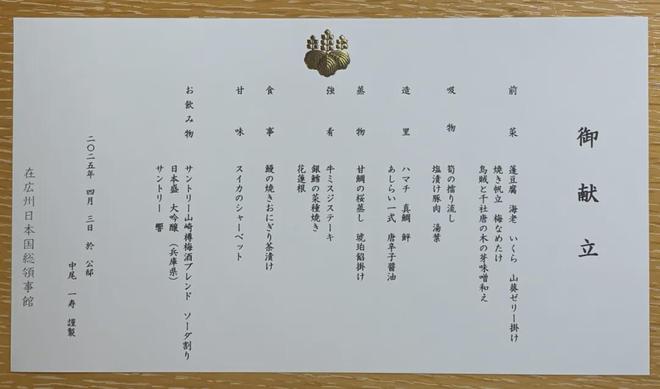 御献立
前菜 蓬豆腐 海老 いくら 山葵ゼリー掛け
焼き帆立 梅なめたけ
烏賊と千社唐の木の芽味噌和え
吸物 筍の擂り流し
塩漬け豚肉 湯葉
造里 ハマチ 真鯛 鮃
あしらい一式 唐辛子醤油
蒸物 甘鯛の桜蒸し 琥珀餡掛け
強肴 牛ミスジステーキ
銀鱈の菜種焼き
花蓮根
食事 鰻の焼きおにぎり茶漬け
甘味 スイカのシャーベット
お飲み物 サントリー山崎樽梅酒ブレンド ソーダ割り
日本盛 大吟醸 (兵庫県)
サントリー 響
二〇二五年 四月 三日 於 公邸
中尾 一寿 謹製
在広州日本国総領事館